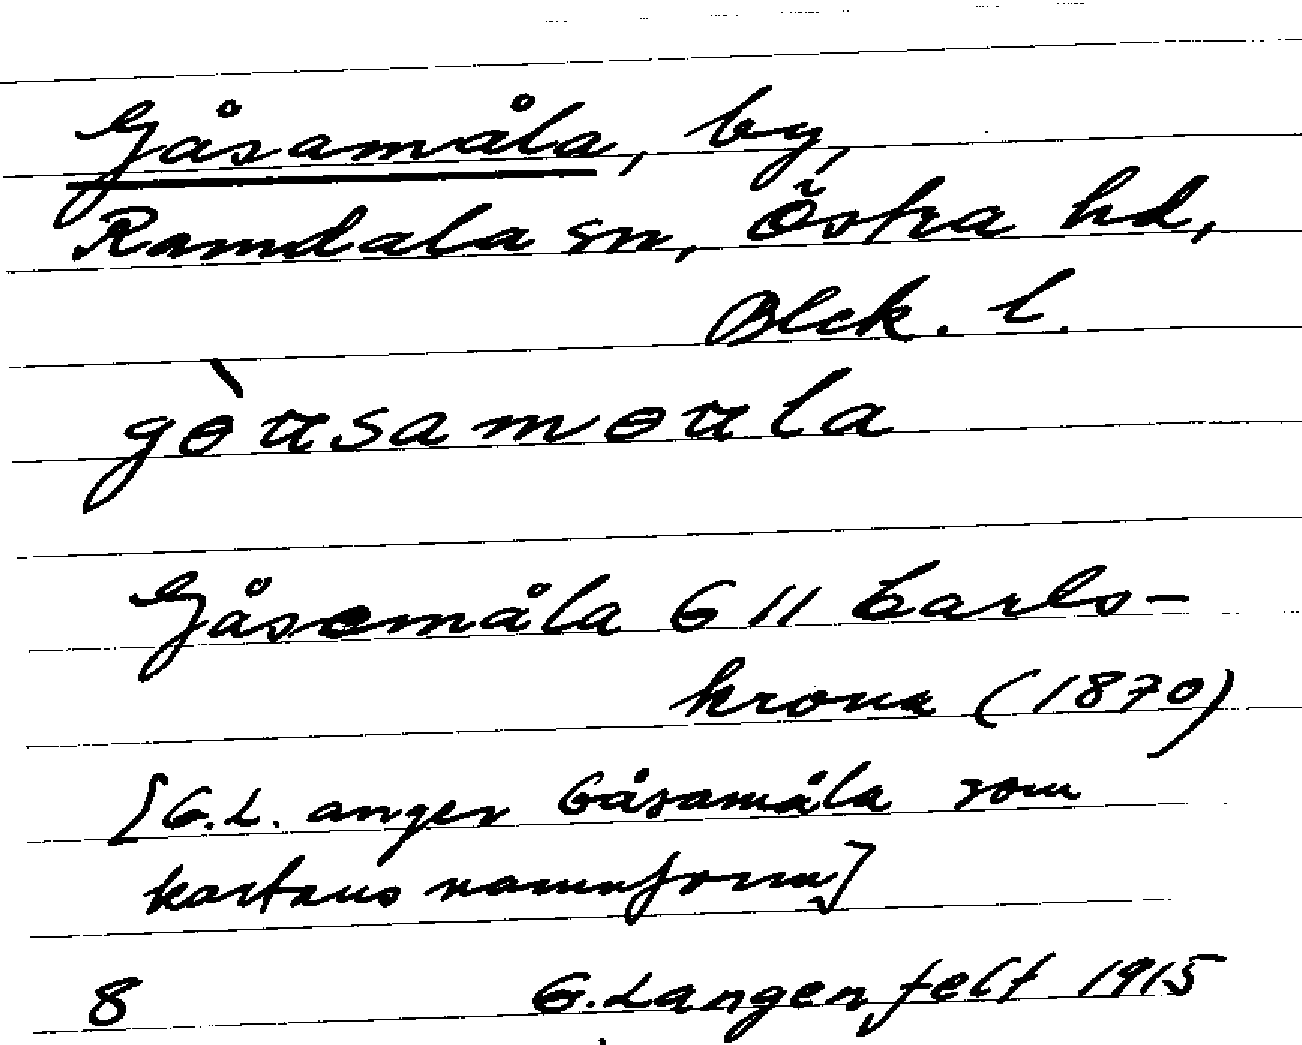 Gåsamåla, by,
Ramdala sn, Östra hd,
Blek. l.
gòʉsamoʉla
Gåsemåla G 11 Carls-
krona (1870)
[G.L. anger Gåsamåla som
kartans namnform]
8 G. Langenfelt 1915